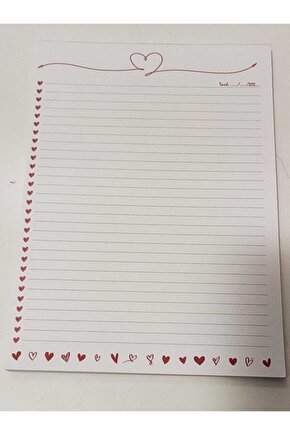 Tarih: ..../..../202..